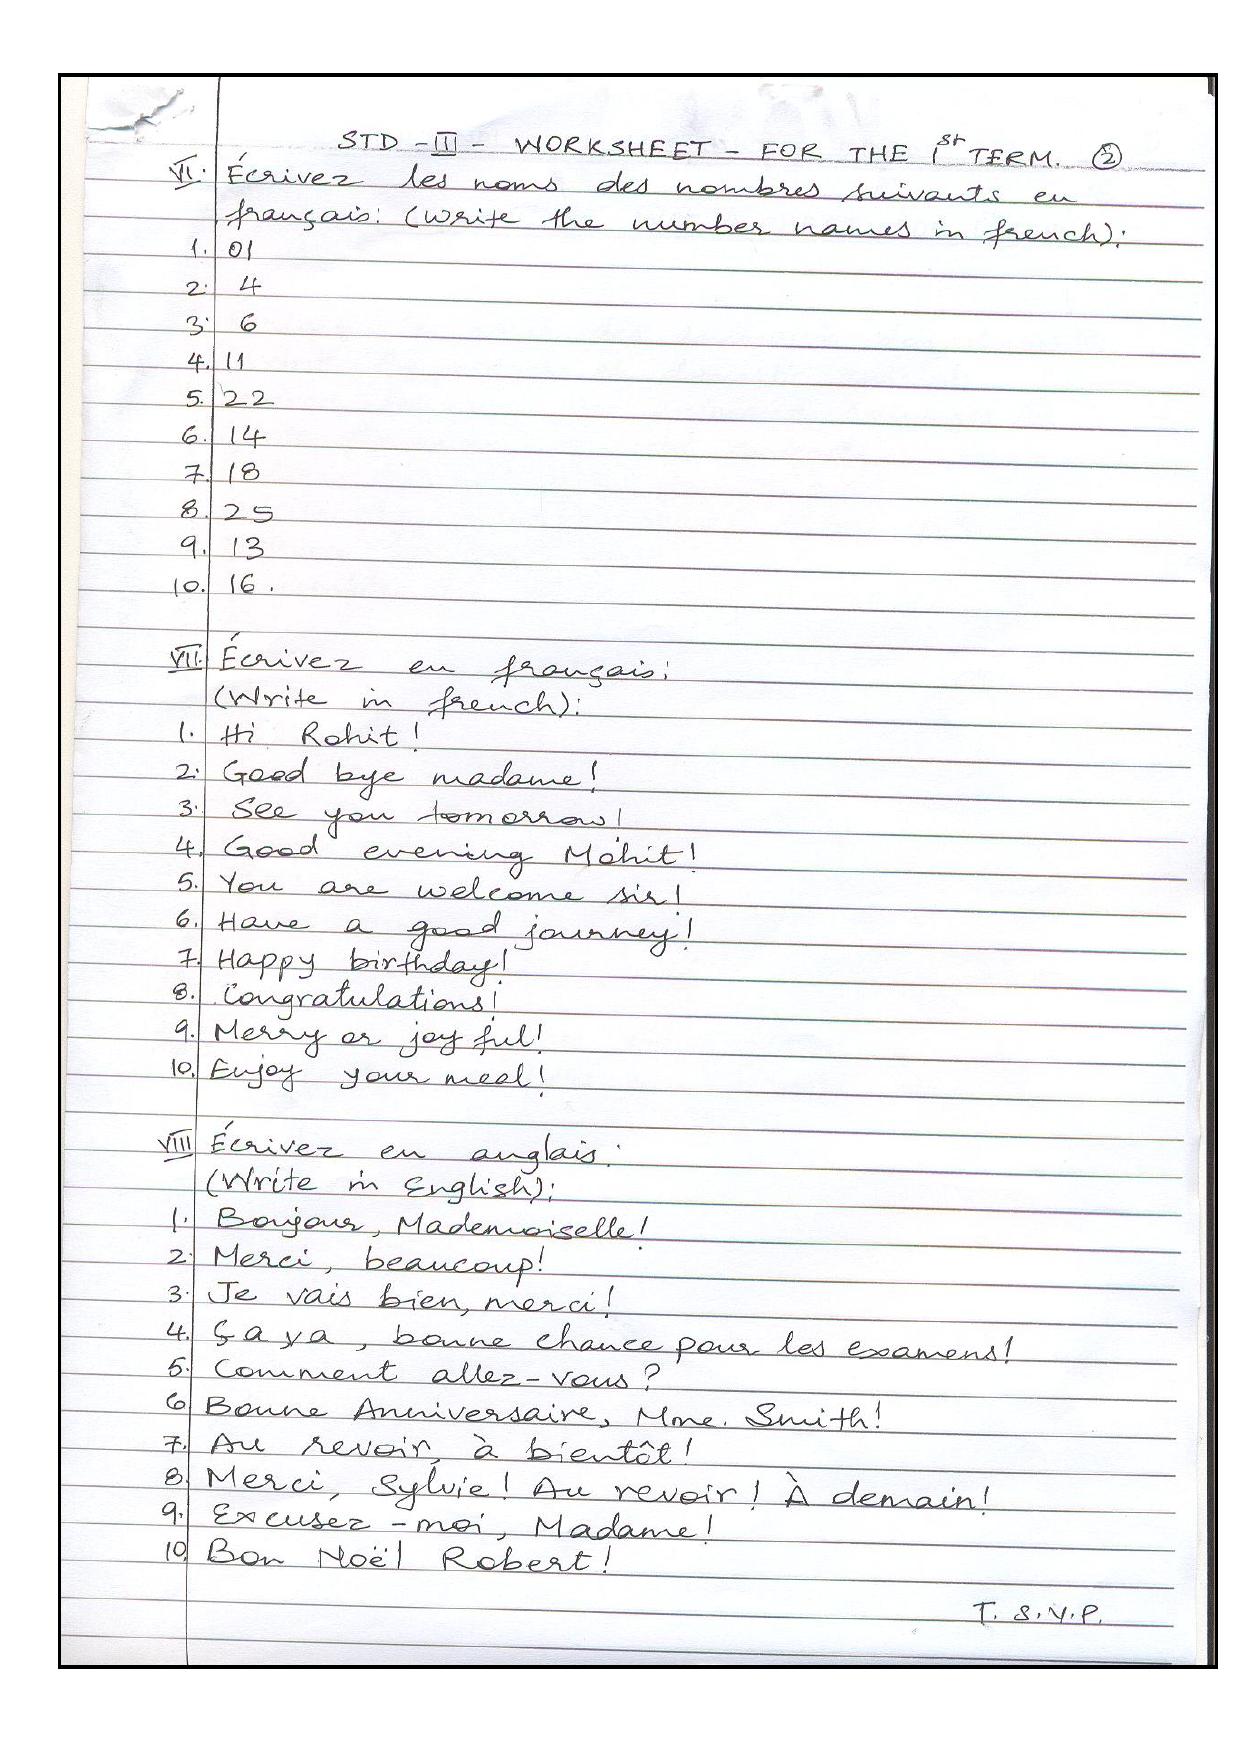 STD - III - WORKSHEET - FOR THE 1st TERM. ②
VI. Écrivez les noms des nombres suivants en
français: (Write the number names in french):
1. 01
2. 4
3. 6
4. 11
5. 22
6. 14
7. 18
8. 25
9. 13
10. 16.
VII. Écrivez en français:
(Write in french):
1. Hi Rohit!
2. Good bye madame!
3. See you tomorrow!
4. Good evening Mohit!
5. You are welcome sir!
6. Have a good journey!
7. Happy birthday!
8. Congratulations!
9. Merry or joy ful!
10. Enjoy your meal!
VIII Écrivez en anglais:
(Write in English):
1. Bonjour, Mademoiselle!
2. Merci, beaucoup!
3. Je vais bien, merci!
4. Ça va, bonne chance pour les examens!
5. Comment allez-vous?
6 Bonne Anniversaire, Mme. Smith!
7. Au revoir, à bientôt!
8. Merci, Sylvie! Au revoir! À demain!
9. Excusez-moi, Madame!
10 Bon Noël Robert!
T. S.V.P.